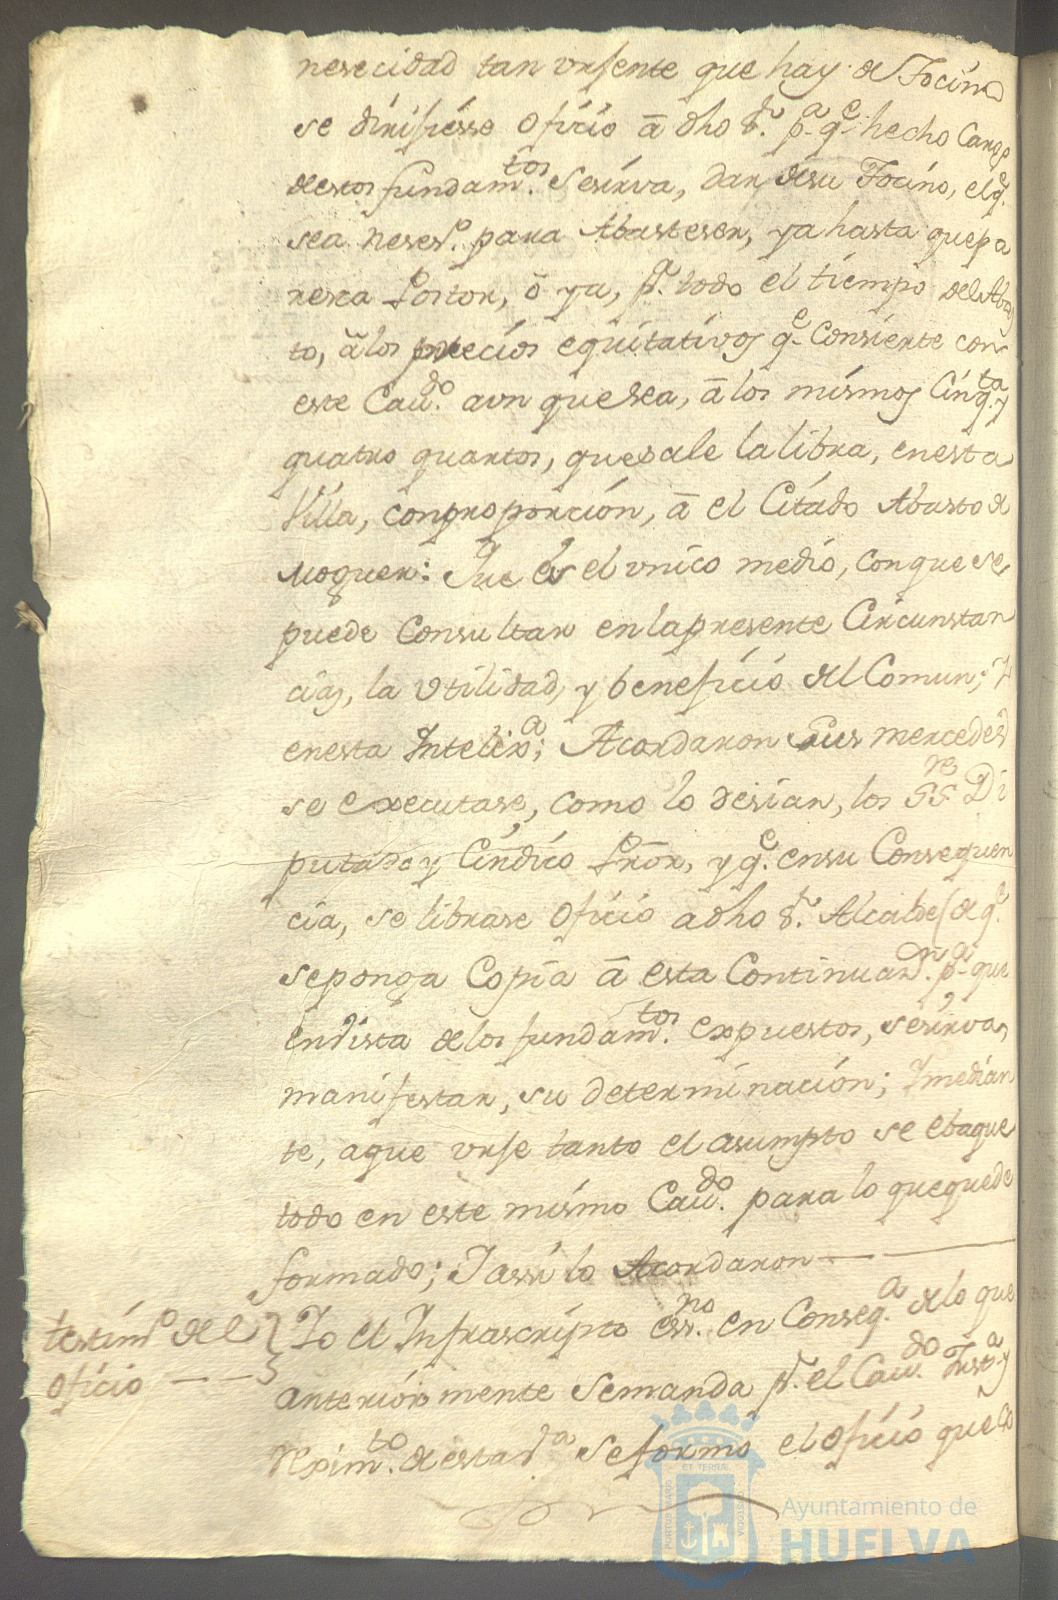 nesecidad tan vrsente que hay de Tocino
se dirisiesse oficio â dho Sr. pa. qe. hecho Cargo
destos fundamtos. se sirva, dar desu Tocino, elqe.
sea neseso. para Abasteser, ya hasta que pa
resca Postor, ô ya, pr. todo el tiempo del Abas
to, â los precios equitativos qe. Consiente con
este Cavdo. aun que sea, â los mismos Cinqta. y
quatro quartos, que sale la libra, en esta
Villa, con proporción, â el Citado Abasto de
Moguer: Que es el vnico medio, con que se
puede Consultar en la presente Circunstan
cias, la Vtilidad, y beneficio del Comun; Y
en esta Intelixa; Acordaron sus mercedes
se executase, como lo desian, los SSres Di
putado y Cíndico Prôr, y qe. en su Consequen
cia, se librase oficio a dho Sr. Alcalde (de qe.
se ponga Copia â esta Continuan.) pa. que
en Vista de los fundamtos. expuestos, se sirva,
manifestar, su determinación; Y median
te, a que vrse tanto el asumpto se ebaque
todo en este mismo Cavdo. para lo que quede
formado; Y assi lo Acordaron
testimo. de el
oficio
Yo el Infrascripto essno. en Conseqa. de lo que
anteriormente se manda pr. el Cavdo. Justa. y
Reximto. de esta Va. se formó el oficio que Co
PORTUS MARIS
ET TERRAE
CUSTODIA
Ayuntamiento de
HUELVA